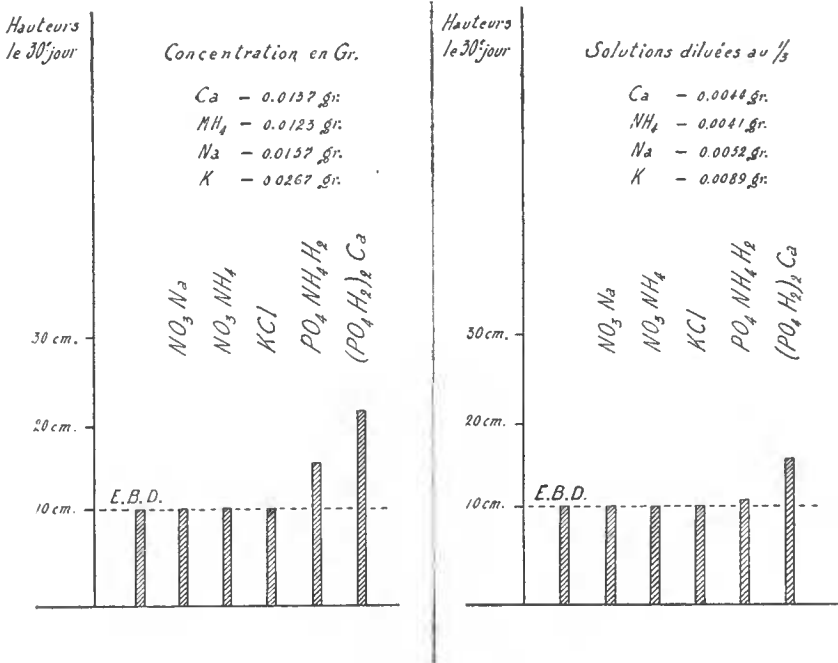 Hauteurs
le 30e jour
Concentration en Gr.
Ca - 0.0137 gr.
NH4 - 0.0123 gr.
Na - 0.0157 gr.
K - 0.0267 gr.
NO3 Na
NO3 NH4
KCl
PO4 NH4 H2
(PO4 H2)2 Ca
30 cm.
20 cm.
10 cm.
E.B.D.
Hauteurs
le 30e jour
Solutions diluées au 1/3
Ca - 0.0044 gr.
NH4 - 0.0041 gr.
Na - 0.0052 gr.
K - 0.0089 gr.
NO3 Na
NO3 NH4
KCl
PO4 NH4 H2
(PO4 H2)2 Ca
30 cm.
20 cm.
10 cm.
E.B.D.